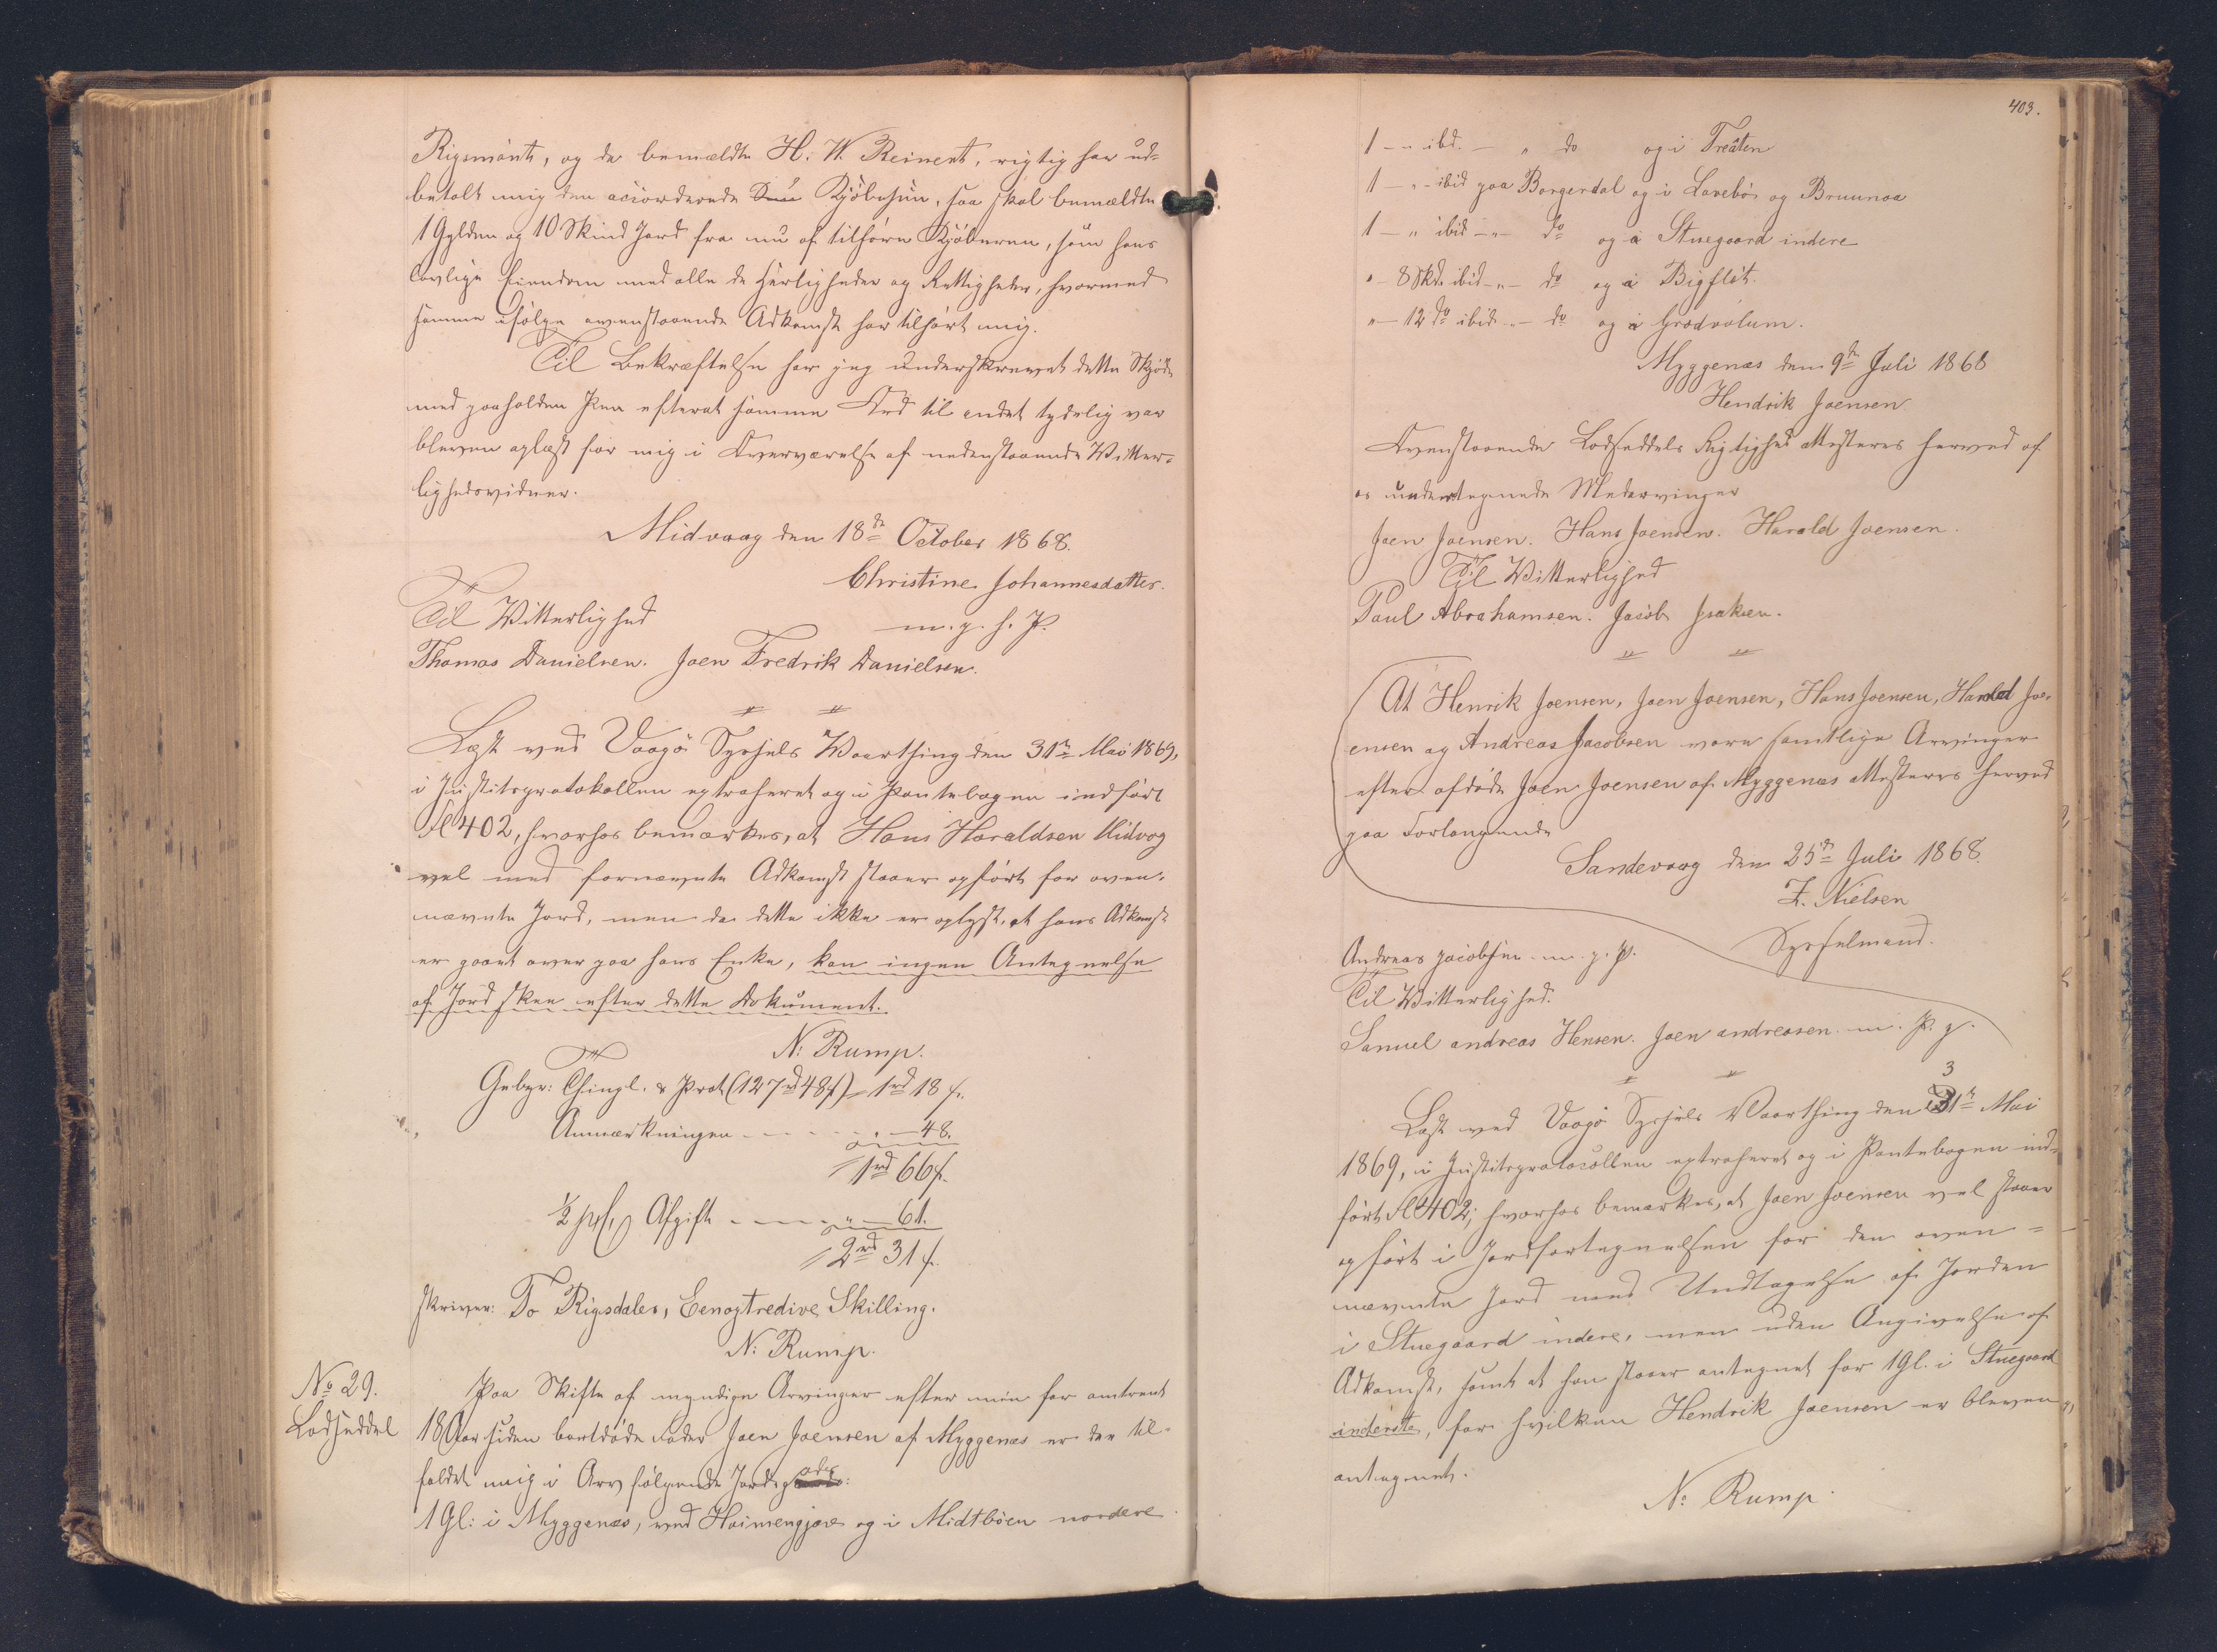 Rigsmönt, og da bemældte H. W. Reinert, rigtig har ud-
betalt mig den accorderede Sum Kjöbesum, saa skal bemældte
1 Gylden og 10 Skind Jord fra nu af tilhöre Kjöberen, som hans
lovlige Eiendom med alle de Herligheder og Rettigheder, hvormed
samme ifölge ovenstaaende Adkomst har tilhört mig.
Til Bekræftelse har jeg underskrevet dette Skjöde
med paaholden Pen efterat samme Ord til andet tydelig var
bleven oplæst for mig i Overværelse af nedenstaaende Vitter-
lighedsvidner.
Midvaag den 18de October 1868.
Christine Johannesdatter.
Til Vitterlighed
m. g. h. P.
Thomas Danielsen. Joen Fredrik Danielsen.
Læst ved Vaagö Syssels Vaarthing den 31te Mai 1869,
i Justitsprotokollen extraheret og i Pantebogen indfört
Fol 402, hvorhos bemærkes, at Hans Haraldsen Midvog
vel med fornævnte Adkomst staaer opfört for oven-
nævnte Jord, men da dette ikke er oplyst, at hans Adkomst
er gaaet over paa hans Enke, kan ingen Antegnelse
af Jord skee efter dette Dokument.
N: Rump.
Gebyr: Thingl. & Prot (127rd 48s) 1rd 18s.
Anmærkningen - - - - 48.
1rd 66s.
½ pCt. Afgift - - - - " - 61.
2rd 31s.
skriver: To Rigsdaler, Eenogtredive Skilling.
N: Rump.
No 29.
Lodseddel
Paa Skifte af myndige Arvinger efter min for omtrent
18 Aar siden bortdöde Fader Joen Joensen af Myggenæs er der til-
faldet mig i Arv fölgende Jordegods:
1 Gl: i Myggenæs, ved Heimengjæra og i Midtböen nordere
403.
1 - " ibd. - " do og i Treäten
1 - " - ibid paa Borgerdal og i Lavebö og Bruunaa
1 - " ibid - " - do og i Stuegaard indere
" - 8 Skd. ibid - " - do og i Bigflöt.
" - 12 do ibid - " - do og i Grodvolum.
Myggenæs den 9de Juli 1868
Hendrik Joensen
Ovenstaaende Lodseddels Rigtighed attesteres herved af
os undertegnede Medarvinger
Joen Joensen. Hans Joensen. Harald Joensen.
Til Vitterlighed
Paul Abrahamsen. Jacob Isaksen.
At Henrik Joensen, Joen Joensen, Hans Joensen, Harald Jo-
ensen og Andreas Jacobsen ere samtlige Arvinger
efter afdöde Joen Joensen af Myggenæs attesteres herved
paa Forlangende
Sandevaag den 25de Juli 1868.
Z. Nielsen
Sysselmand.
Andreas Jacobsen m. g. P.
Til Vitterlighed.
Samuel andreas Hensen. Joen andreasen m. P. g.
3
Læst ved Vaagö Syssels Vaarthing den 31te Mai
1869, i Justitsprotocollen extraheret og i Pantebogen ind-
fört Fol 402; hvorhos bemærkes, at Joen Joensen vel staaer
opfört i Jordfortegnelsen for den oven-
nævnte Jord med Undtagelse af Jorden
i Stuegaard indere, men uden Angivelse af
Adkomst, samt at han staaer antegnet for 1 Gl. i Stuegaard
inderste, for hvilken Hendrik Joensen er bleven
antegnet.
N: Rump.